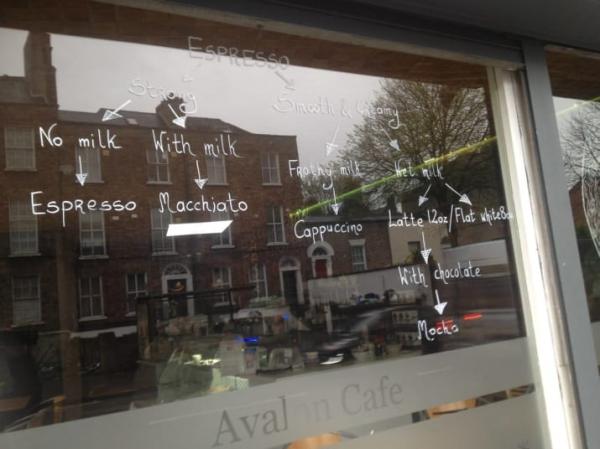 ESPRESSO
Strong
Smooth & Creamy
No milk
With milk
Frothy milk
Wet milk
Espresso
Macchiato
Cappuccino
Latte 12oz/Flat white 8oz
With chocolate
Mocha
Avalon Cafe